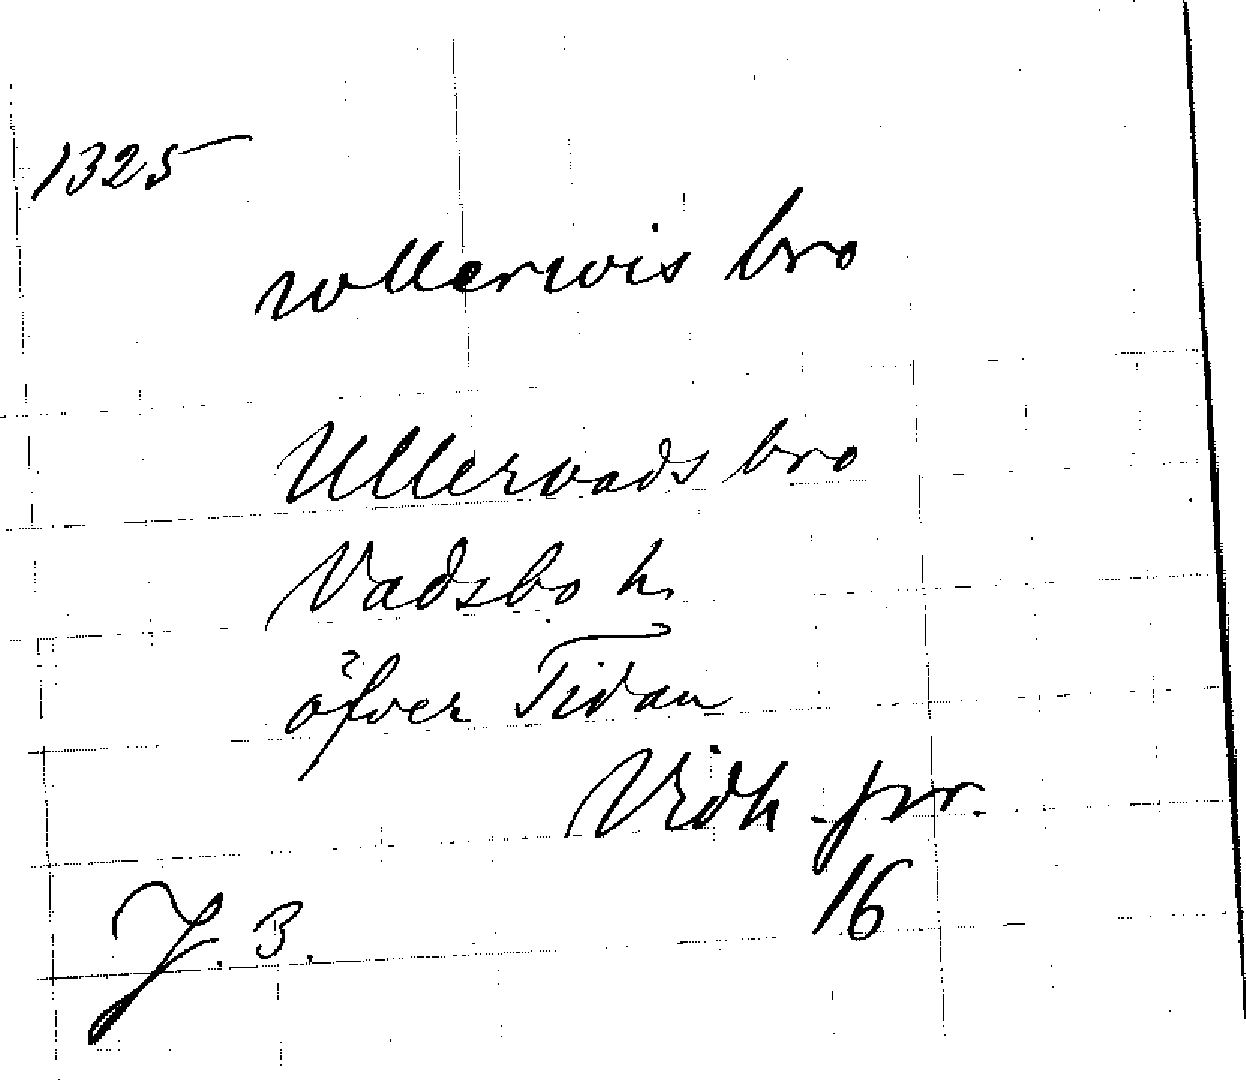 1325
wllerwis bro
Ullervads bro
Vadsbo h.
öfver Tidan
Vidh. pr.
16
J. B.